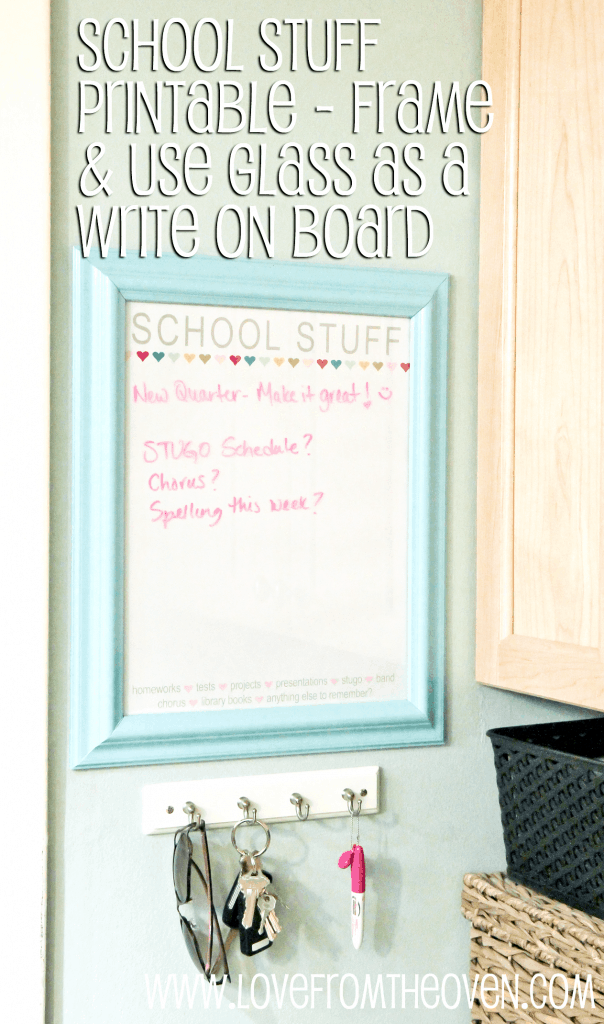 SCHOOL STUFF
PRINTABLE - FRAME
& USE GLASS AS A
WRITE ON BOARD
SCHOOL STUFF
New Quarter - Make it great! ☺
STUGO Schedule?
Chorus?
Spelling this week?
homeworks ♥ tests ♥ projects ♥ presentations ♥ stugo ♥ band
chorus ♥ library books ♥ anything else to remember?
WWW.LOVEFROMTHEOVEN.COM